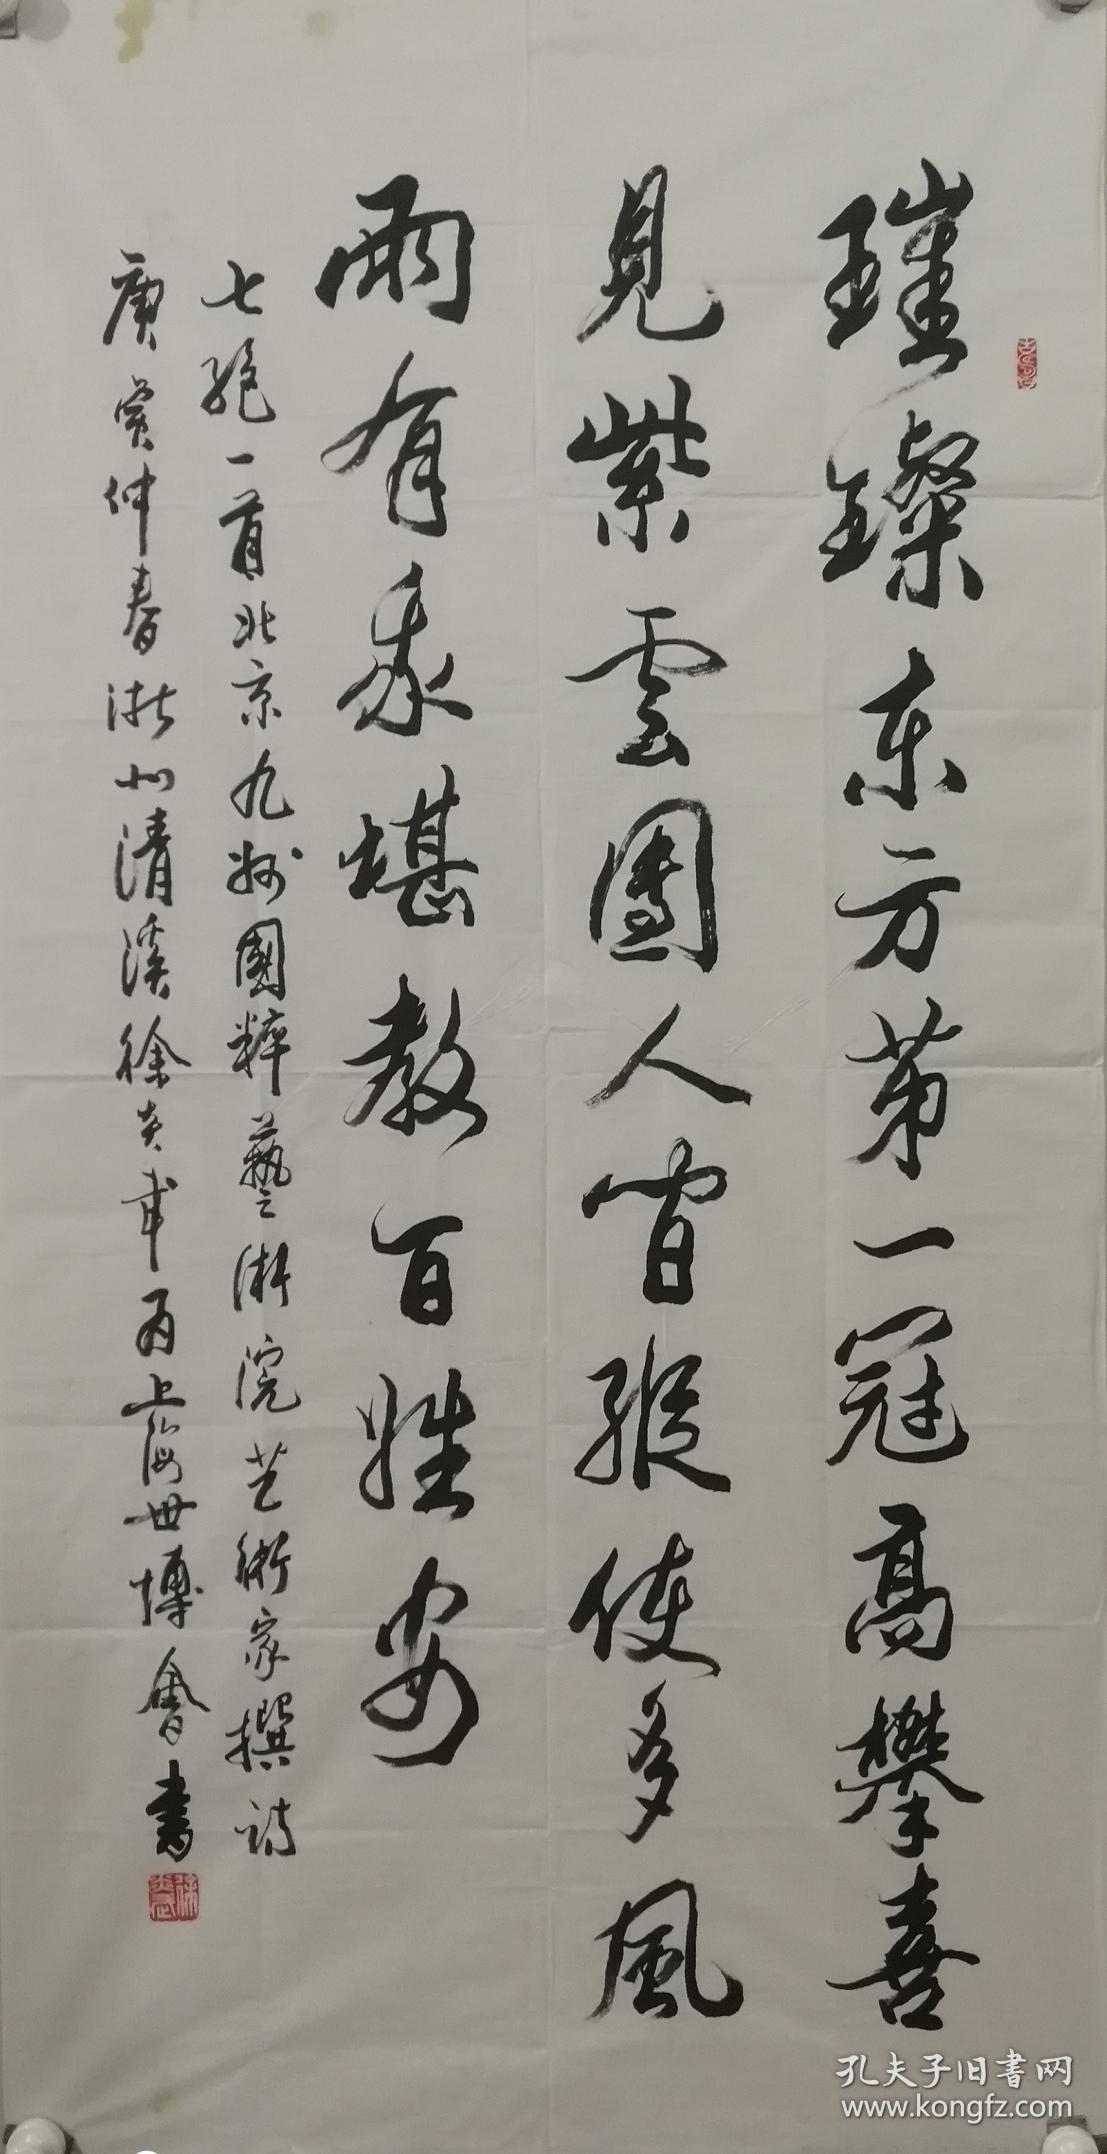 璀璨东方第一冠高攀喜
見紫雲團人间縱使多風
雨有我堪教百姓安
七絕一首北京九州國粹藝術院艺術家撰詩
庚寅仲春浙北清溪徐炎年为上海世博會書
孔夫子旧書网
www.kongfz.com